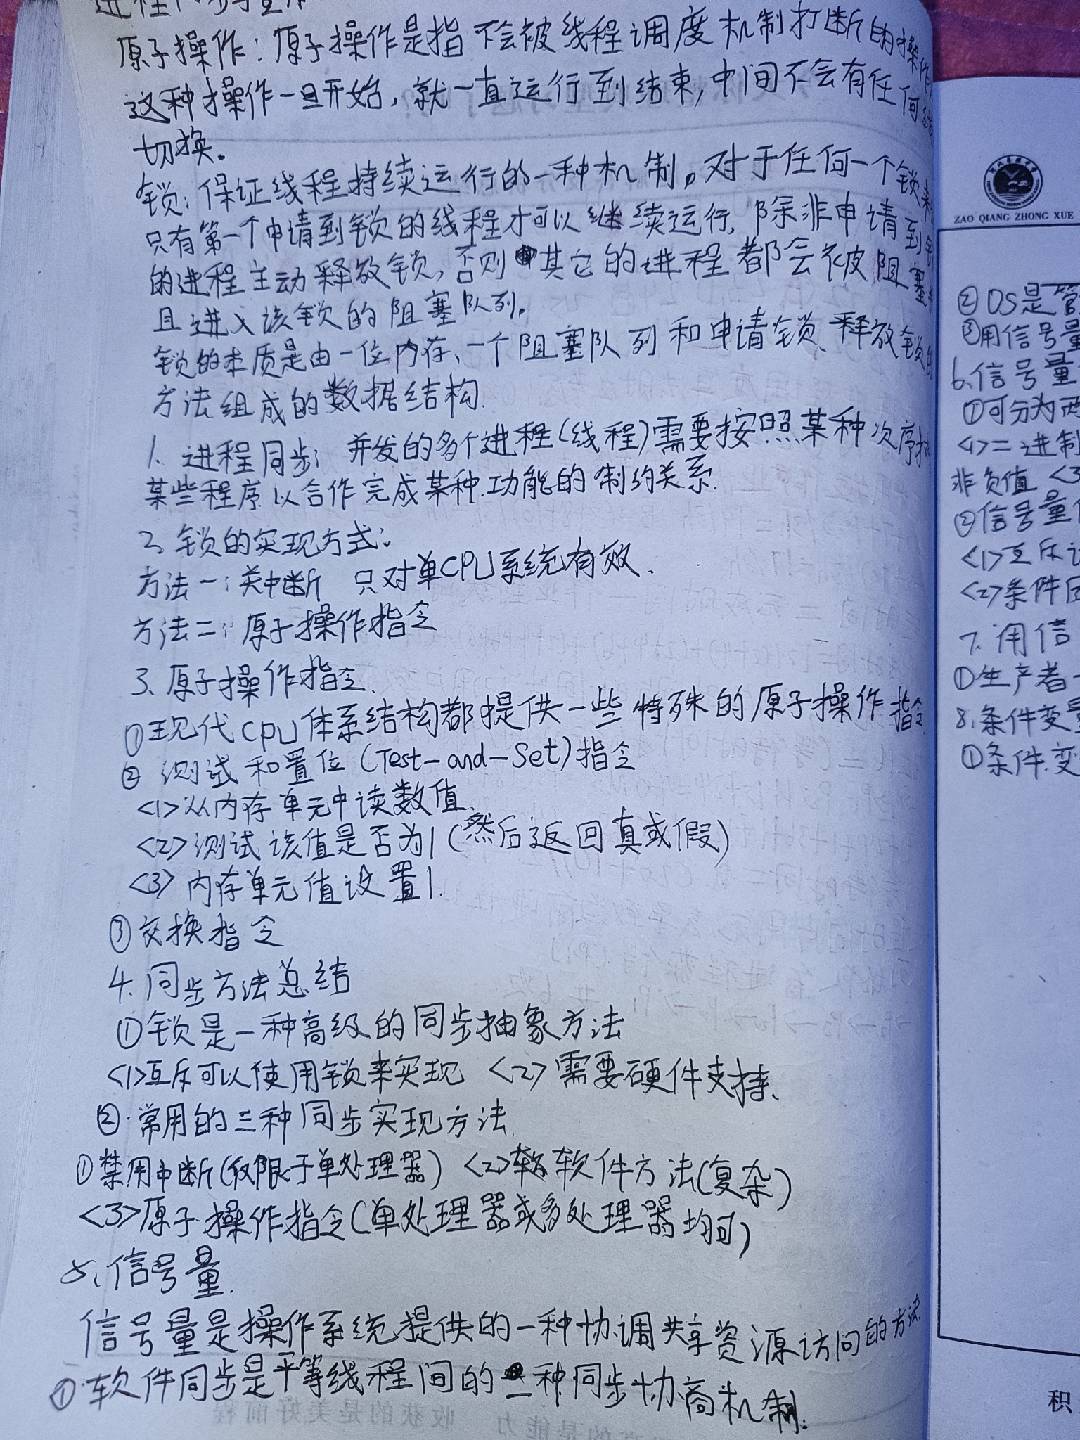 原子操作：原子操作是指不会被线程调度机制打断的操作
这种操作一旦开始，就一直运行到结束，中间不会有任何
切换。
锁：保证线程持续运行的一种机制，对于任何一个锁来
只有第一个申请到锁的线程才可以继续运行，除非申请到锁
的进程主动释放锁，否则其它的进程都会被阻塞
且进入该锁的阻塞队列。
锁的本质是由一位内存、一个阻塞队列和申请锁、释放锁的
方法组成的数据结构.
1. 进程同步：并发的多个进程(线程)需要按照某种次序
某些程序以合作完成某种功能的制约关系.
2. 锁的实现方式：
方法一：关中断 只对单CPU系统有效.
方法二：原子操作指令
3. 原子操作指令.
①现代CPU体系结构都提供一些特殊的原子操作指令
② 测试和置位(Test-and-Set)指令
<1>从内存单元中读数值.
<2>测试该值是否为1(然后返回真或假)
<3>内存单元值设置1.
③交换指令
4. 同步方法总结
①锁是一种高级的同步抽象方法
<1>互斥可以使用锁来实现 <2>需要硬件支持.
②.常用的三种同步实现方法
①禁用中断(仅限于单处理器) <2>软件方法(复杂)
<3>原子操作指令(单处理器或多处理器均可)
5. 信号量.
信号量是操作系统提供的一种协调共享资源访问的方法
①软件同步是平等线程间的一种同步协商机制.
ZAO QIANG ZHONG XUE
②OS是管
③用信号量
6.信号量
①可分为两
<1>二进制
非负值 <3
②信号量
<1>互斥
<2>条件同
7. 用信
①生产者-
8.条件变量
①条件变
积